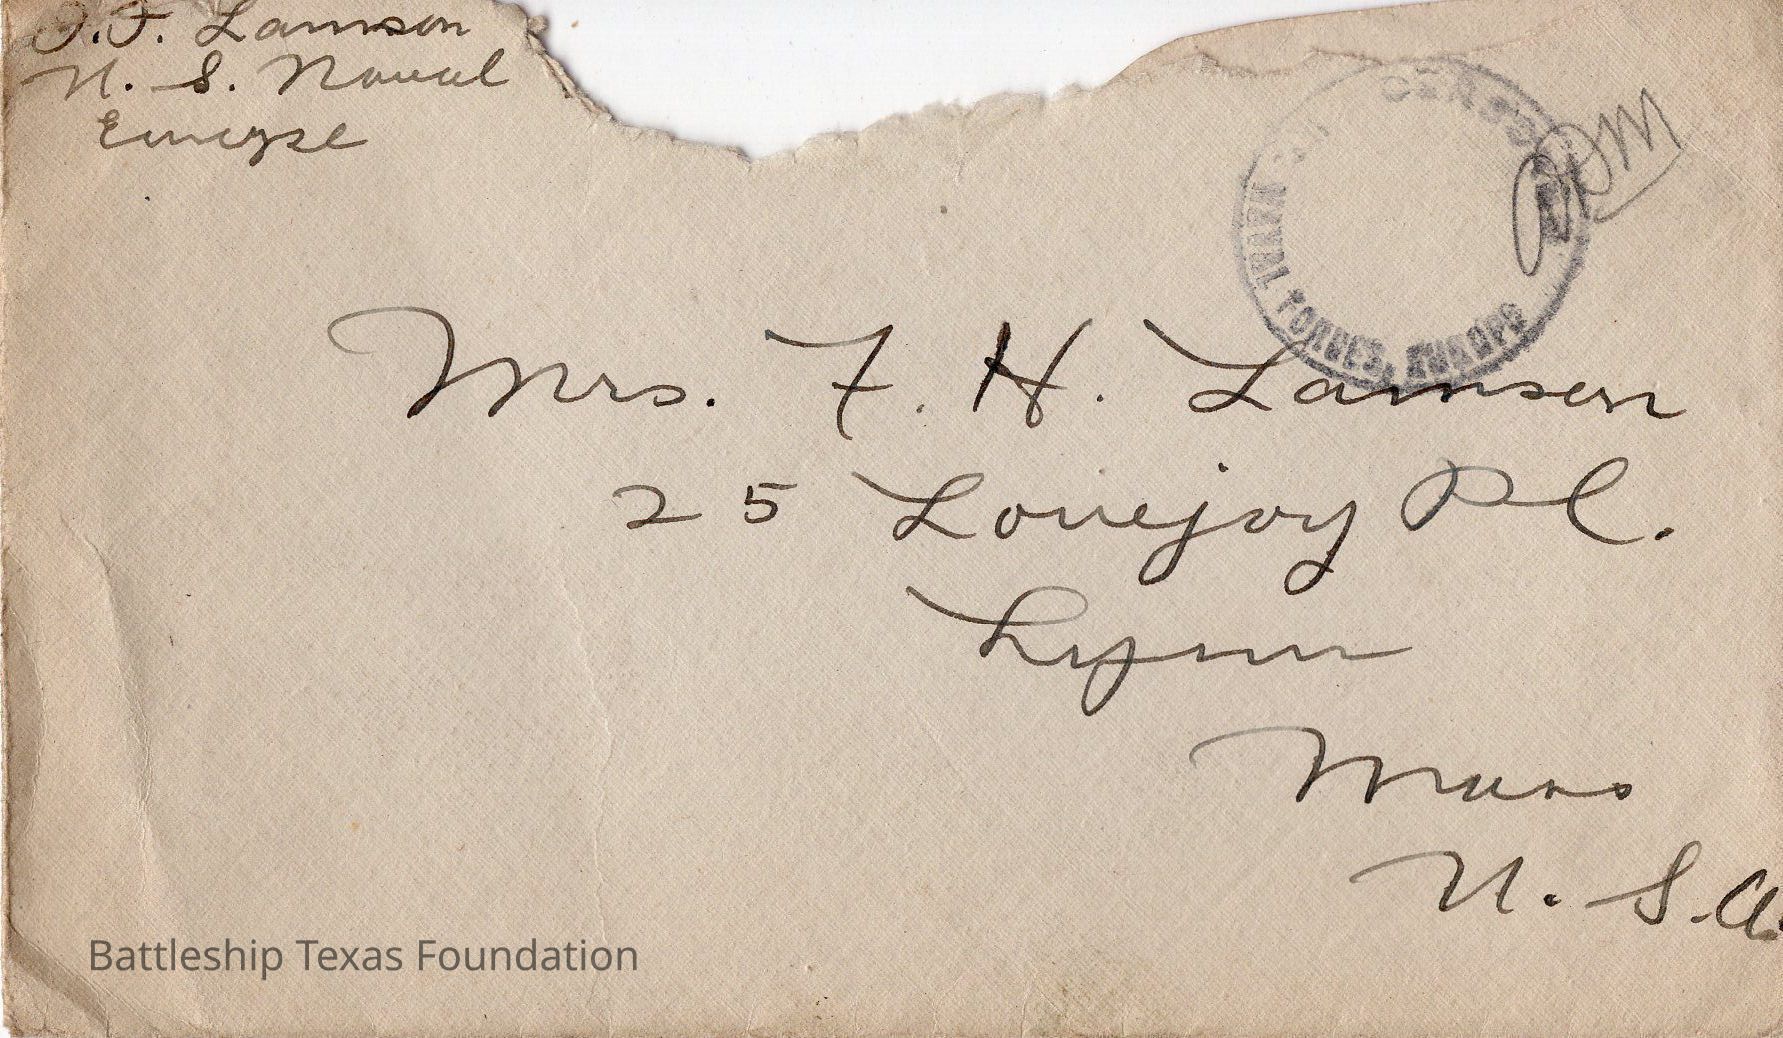 Lamson
U. S. Naval
Europe
CENSOR
NAVAL FORCES, EUROPE
Mrs. F. H. Lamson
25 Lovejoy Pl.
Lynn
Mass
U. S. A.
Battleship Texas Foundation